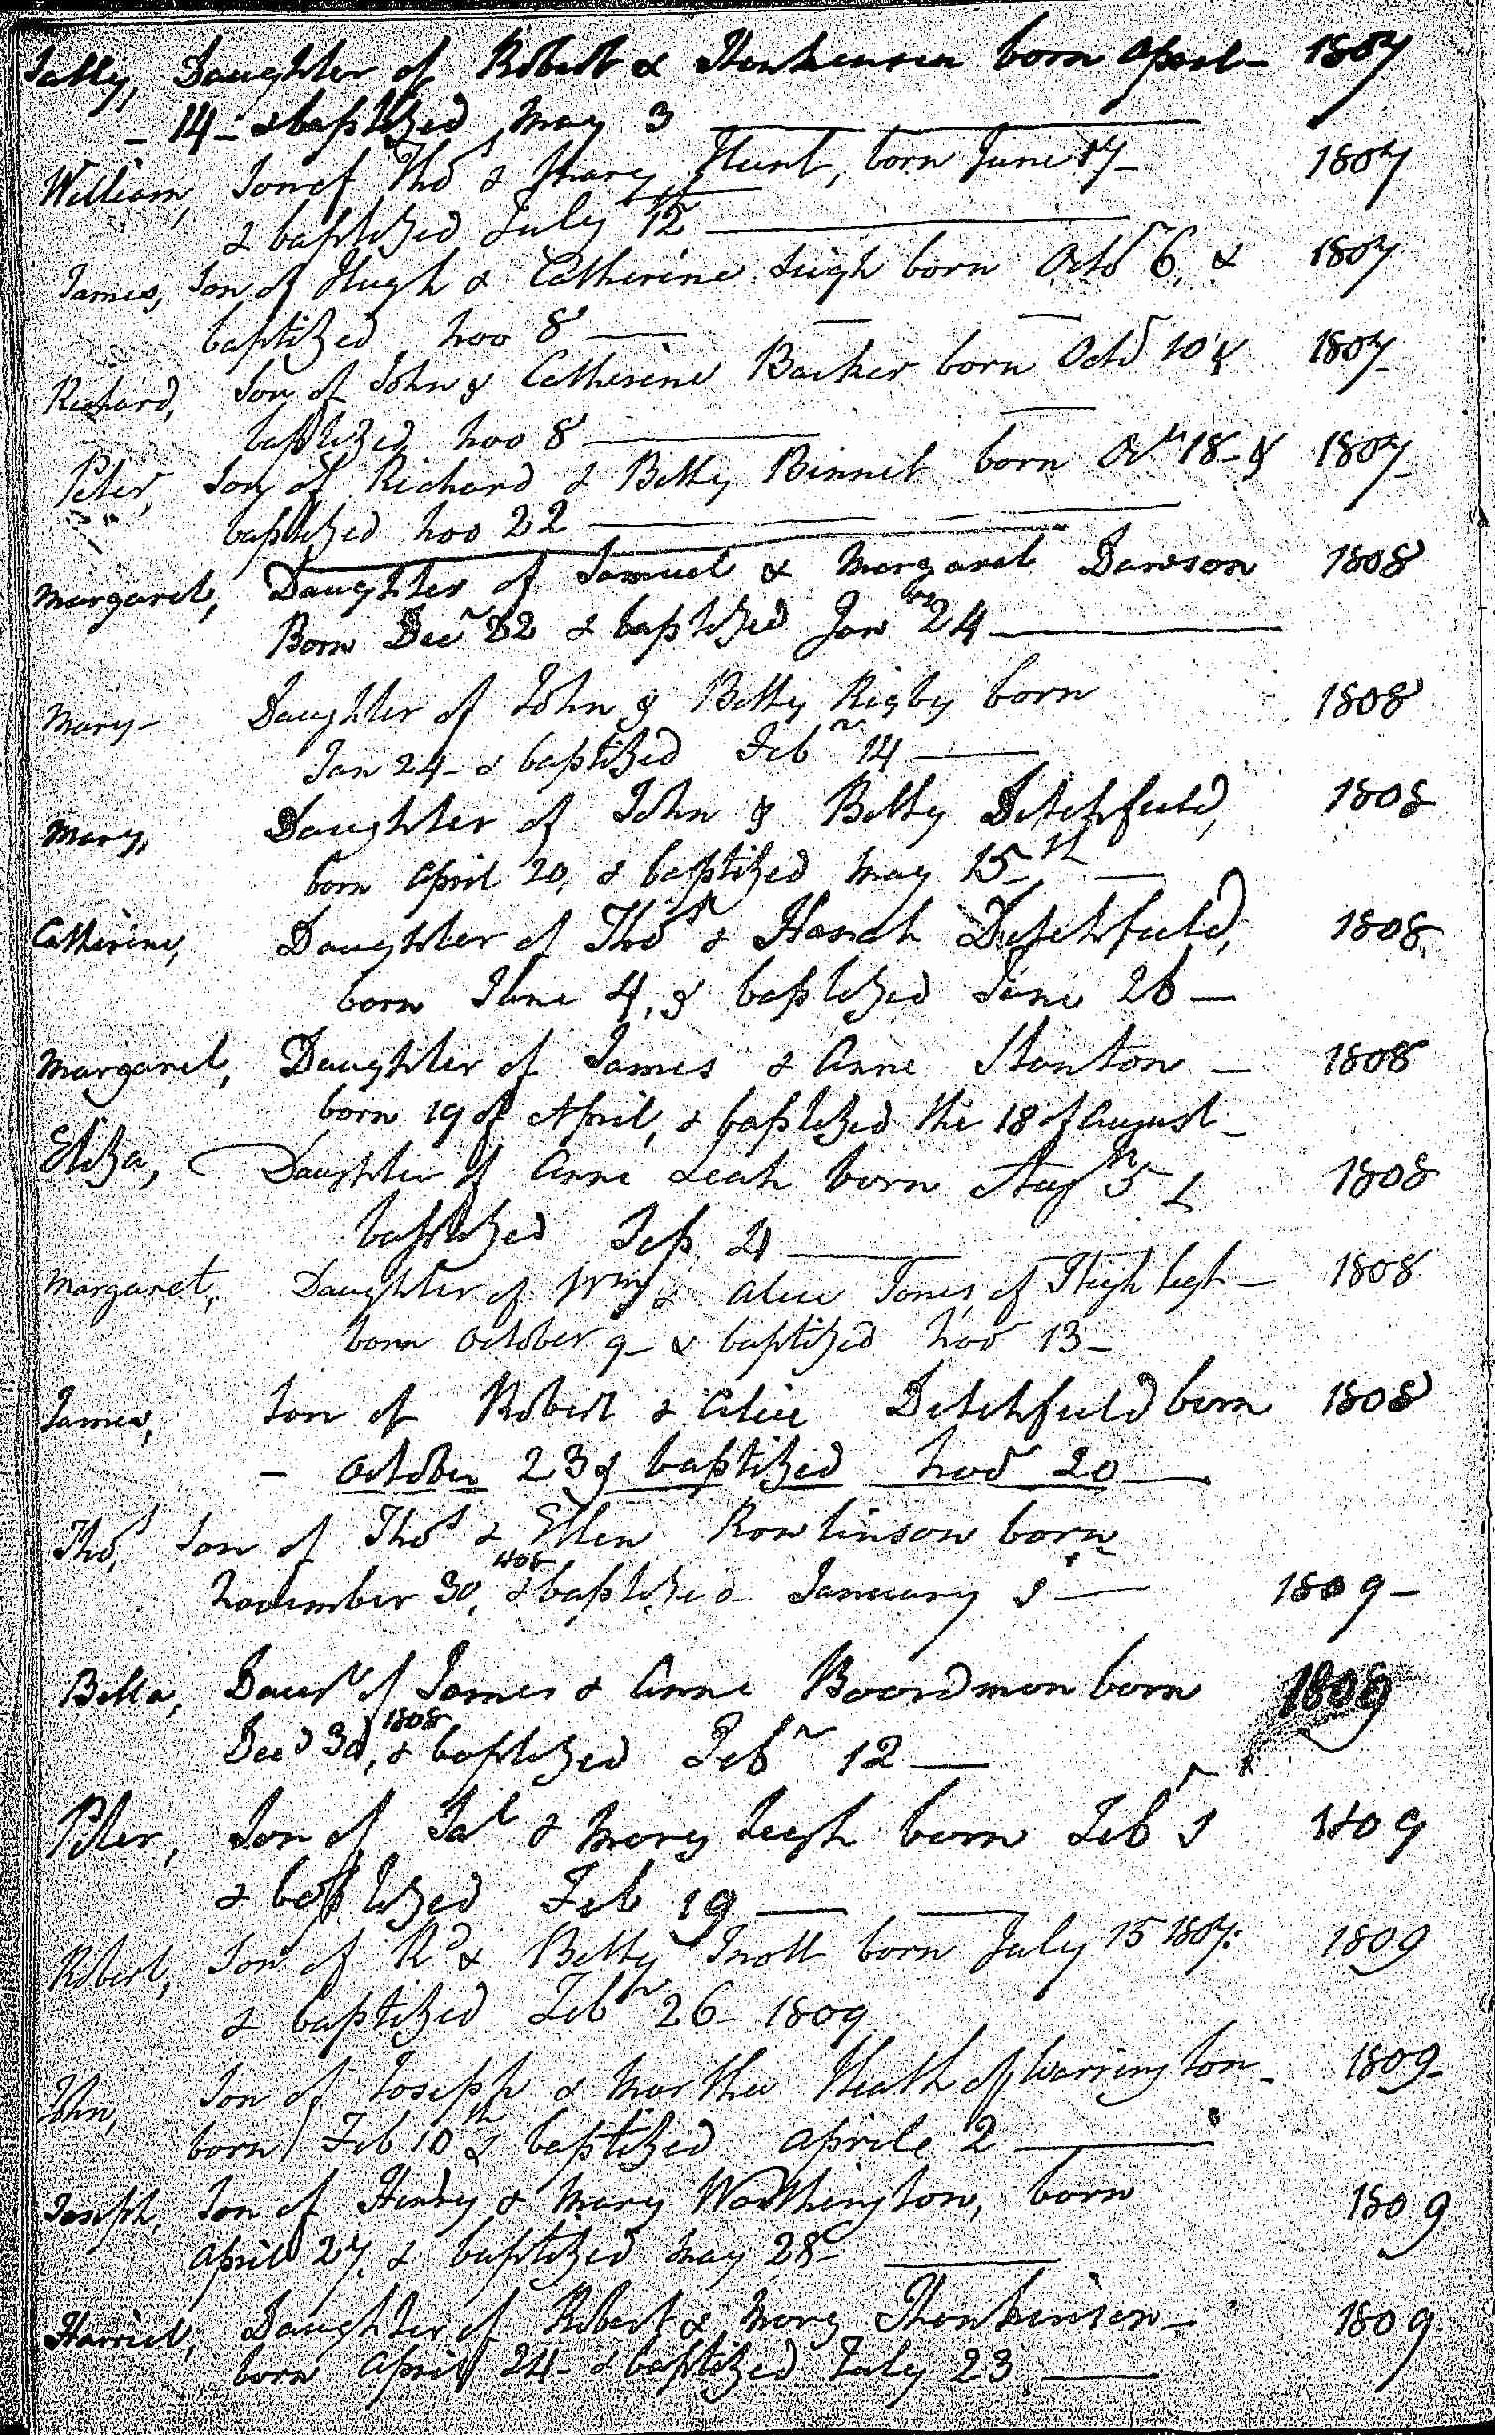 Sally, Daughter of Robert & Hankinson born April 1807
14 & baptized May 3
William, Son of Thos & Mary Hunt, born June 17 1807
& baptized July 12
James, Son of Hugh & Catherine Leigh born Octr 6, & 1807
baptized Nov 8
Richard, Son of John & Catherine Barker born Octr 10 & 1807
baptized Nov 8
Peter, Son of Richard & Betty Binnet born Oct 18 & 1807
baptized Nov 22
Margaret, Daughter of Samuel & Margaret Dawson 1808
Born Decr 22 & baptized Jan 24
Mary Daughter of John & Betty Rigby born 1808
Jan 24 & baptized Febr 14
Mary, Daughter of John & Betty Ditchfield, 1808
born April 20, & baptized May 15th
Catherine, Daughter of Thos & Hanah Ditchfield, 1808
born June 4, & baptized June 26
Margaret, Daughter of James & Anne Stanton 1808
born 19 of April, & baptized the 18 of August
Eliza, Daughter of Anne Leah born Aug 5 & 1808
baptized Sep 4
Margaret, Daughter of Wm & Alice Jones, of High Legh 1808
born October 9 & baptized Novr 13
James, Son of Robert & Alice Ditchfield born 1808
October 23 & baptized Novr 20
Thos, Son of Thos & Ellen Rowlinson born
November 30, 1808 & baptized January 1809
Betta, Daur of James & Anne Boordman born 1809
Decr 30, 1808 & baptized Febr 12
Peter, Son of Sal & Mary Leigh born Febr 1809
& baptized Feb 19
Robert, Son of Rd & Betty Knott born July 15 1807: 1809
& baptized Febr 26 1809
John, Son of Joseph & Martha Heath of Warrington 1809
born Feb 10th & baptized Aprile 2
Joseph, Son of Henry & Mary Worthington, born 1809
April 27, & baptized May 28
Harriet, Daughter of Robert & Mary Hankinson 1809
born April 24 & baptized July 23